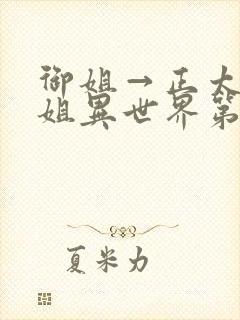 御姐→正太
姐異世界第
夏米力